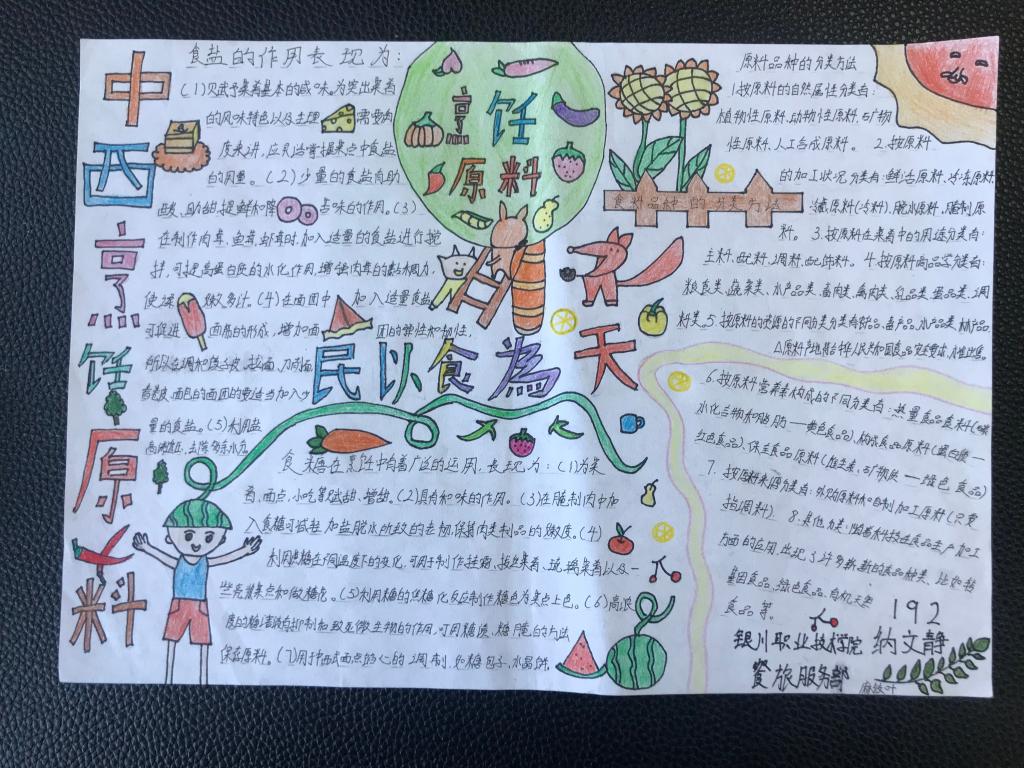 中西烹饪原料
食盐的作用表现为：
(1)赋予菜肴基本的咸味。为突出菜肴
的风味特色以及主理 需要肉
质来讲，应灵活掌握菜点中食盐
的用量。(2)少量的食盐有助
酸、助甜、提鲜和 味的作用。(3)
在制作肉茸、鱼茸、虾茸时，加入适量的食盐进行搅
拌，可提高蛋白质的水化作用，增强肉茸的黏稠力，
使 嫩多汁。(4)在面团中 加入适量食盐
可促进 面筋的形成，增加面 团的弹性和韧性，
面包的面团时要适当加入少
量的食盐。(5)利用盐
烹饪
原料
民以食為天
食糖在烹饪中有着广泛的运用，表现为：(1)为菜
肴、面点、小吃等赋甜、增甜。(2)具有和味的作用。(3)在腌制肉中加
入食糖可减轻加盐脱水所致的老韧，保持肉类制品的嫩度。(4)
利用蔗糖在不同温度下的变化，可用于制作挂霜、拔丝菜肴、琉璃菜肴以及一
些亮浆菜点和做糖花。(5)利用糖的焦糖化反应制作糖色为菜点上色。(6)高浓
度的糖溶液有抑制和致死微生物的作用，可用糖渍、糖腌的方法
保存原料。(7)用于中西式面点的心的调制，如糖包子、水晶饼。
原料品种的分类方法
1.按原料的自然属性分类有：
植物性原料、动物性原料、矿物
性原料、人工合成原料。 2.按原料
的加工状况分类有：鲜活原料、冷冻原料
冷藏原料(冷料)、脱水原料、腌制原
料。 3.按原料在菜肴中的用途分类有：
食料品种的分类方法
主料、配料、调料、配饰料。4.按原料商品学分类有：
粮食类、蔬菜类、水产品类、畜肉类、禽肉类、乳品类、蛋品类、调
料类。5.按原料的资源的不同分类分类有农产品、畜产品、水产品类、林产品。
6.按原料营养素构成的不同分类有：热量食品原料(碳
水化合物和脂肪——黄色食品)、构成食品原料(蛋白质——
红色食品)、保全食品原料(维生素、矿物质——绿色食品)
7.按原料来源分类有：外购原料和自制加工原料(只要
指调料)。 8.其他分类：随着科技在食品生产加工
方面的应用，出现了许多新新的食品种类，比如转
基因食品、绿色食品、有机天然
食品等。
192
银川职业技术学院 纳文静
餐旅服务部